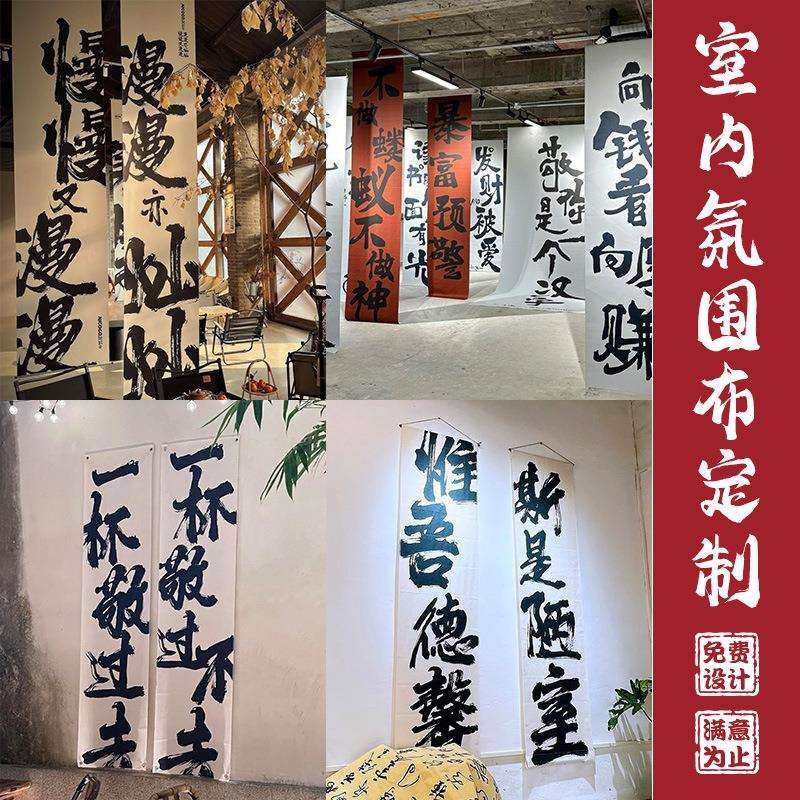 慢慢又漫漫
漫漫亦灿灿
不做蝼蚁不做神
暴富预警
发财
被爱
敬你是个汉
向钱看
一杯敬过去
一杯敬过不去
惟吾德馨
斯是陋室
室内氛围布定制
免费
设计
满意
为止